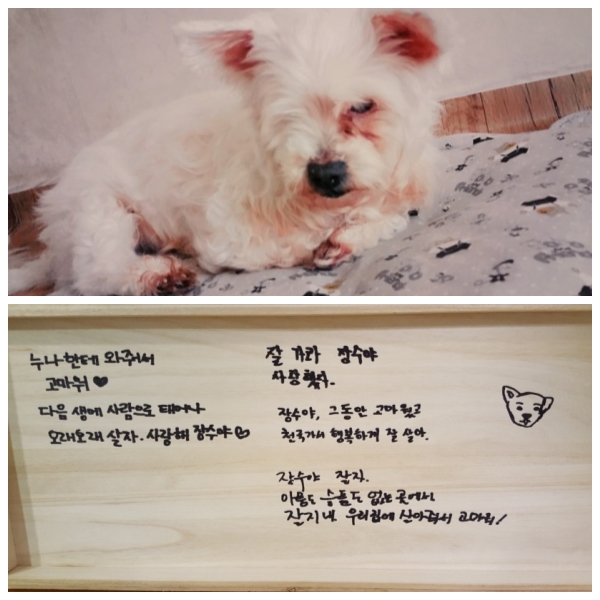 누나한테 와줘서
고마워 ♥
다음 생에 사람으로 태어나
오래오래 살자. 사랑해 장수야 ♡
잘 가라 장수야
사랑했다.
장수야, 그동안 고마웠고
천국가서 행복하게 잘 살아.
장수야 잘가.
아픔도 슬픔도 없는 곳에서
잘지내. 우리집에 살아줘서 고마워!